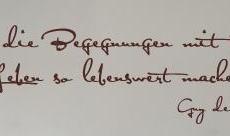 die Begegnungen mit
Leben so lebenswert mache
Guy de